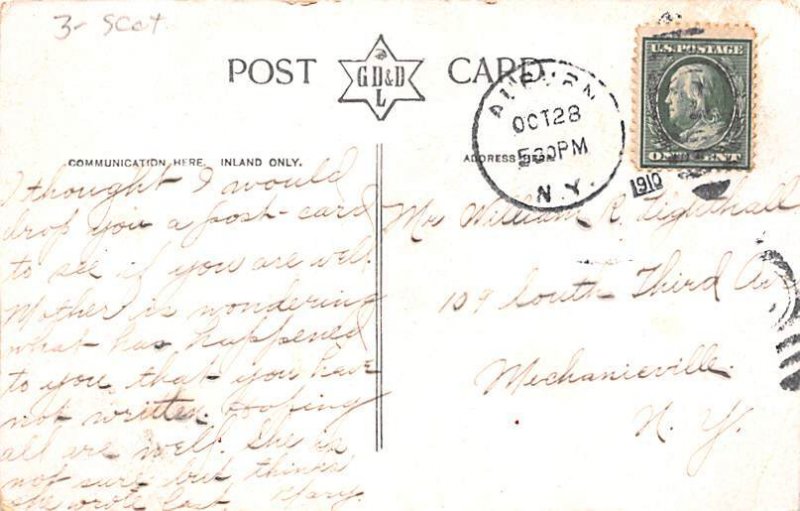 3- Scat
POST CARD
G D & D
L
AUBURN
OCT 28
530PM
N.Y.
1910
U.S. POSTAGE
ONE CENT
COMMUNICATION HERE. INLAND ONLY.
ADDRESS HERE
I thought I would
drop you a post-card
to see if you are well.
Mother is wondering
what has happened
to you, that you have
not written. Hoping
all are well. She is
not sure but thinks
she wrote last. Mary.
Mr William R. Lighthall
109 South Third Av
Mechanicville.
N. Y.